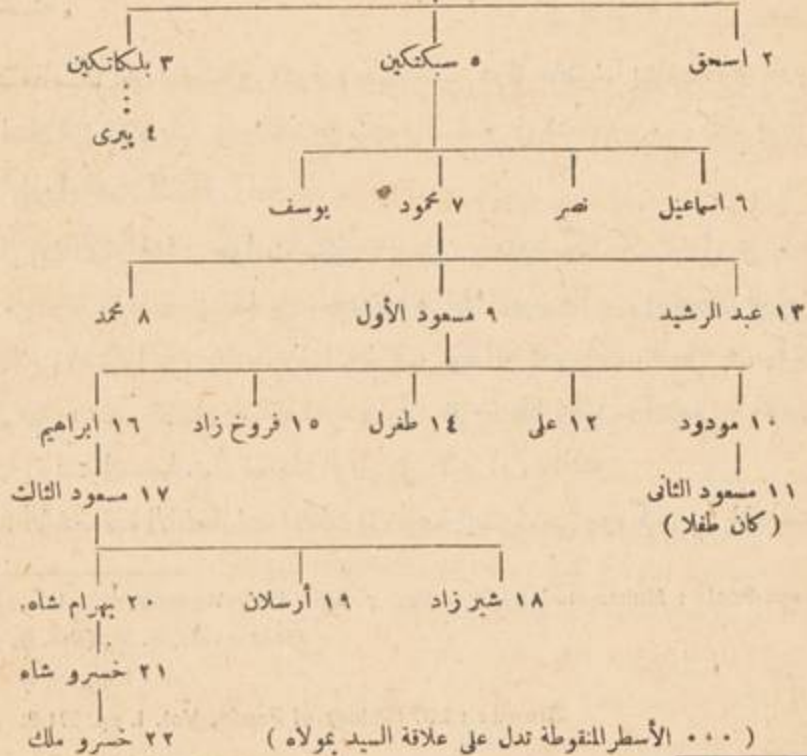 ٢ اسحق ٥ سبكتكين ٣ بلكاتكين
٤ پيرى
٦ اسماعيل نصر ٧ محمود يوسف
١٣ عبد الرشيد ٩ مسعود الأول ٨ محمد
١٠ مودود ١٢ على ١٤ طغرل ١٥ فروخ زاد ١٦ ابراهيم
١١ مسعود الثانى ١٧ مسعود الثالث
( كان طفلا )
١٨ شير زاد ١٩ أرسلان ٢٠ بهرام شاه.
٢١ خسرو شاه
( ٠٠٠ الأسطر المنقوطة تدل على علاقة السيد بمولاه ) ٢٢ خسرو ملك